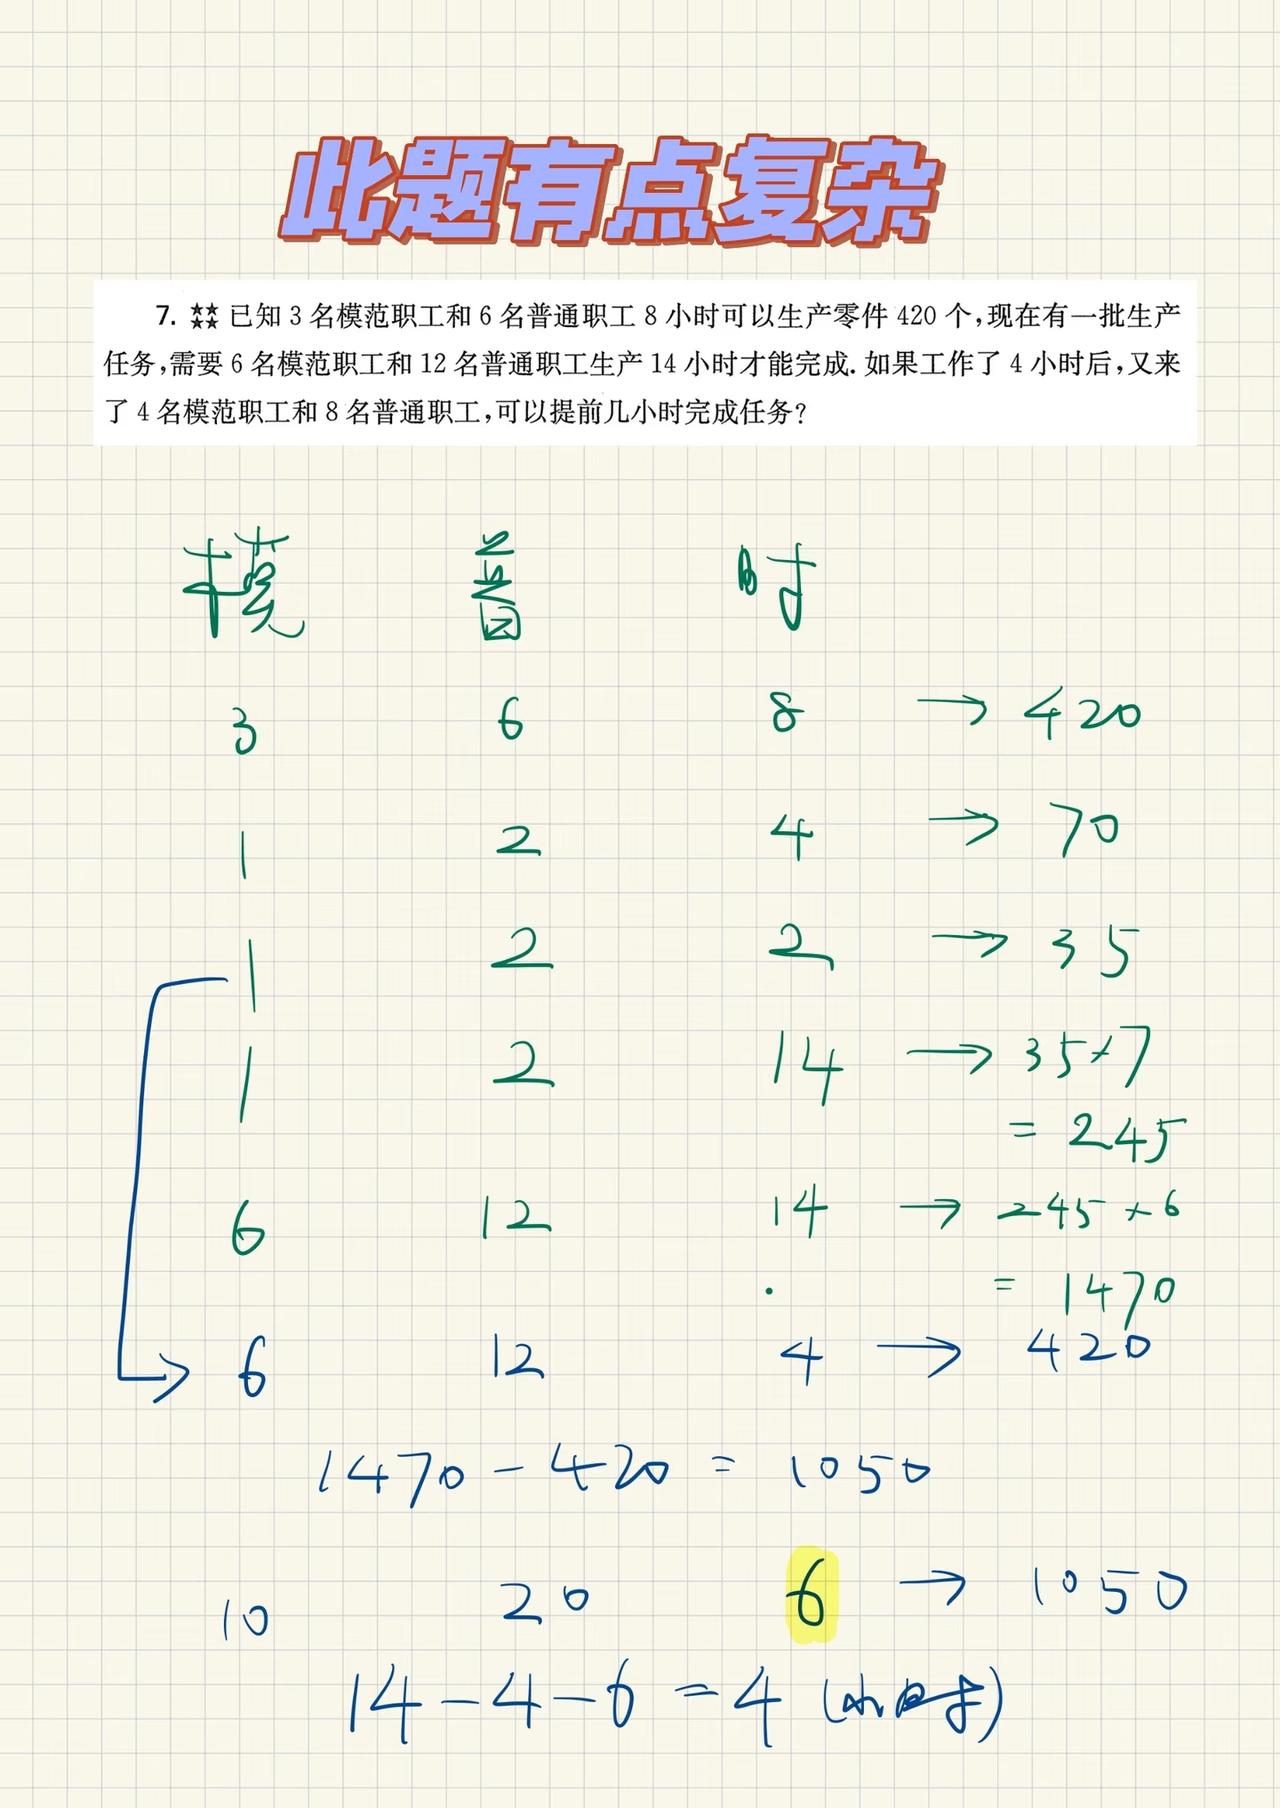 此题有点复杂
7. ★★★★ 已知 3 名模范职工和 6 名普通职工 8 小时可以生产零件 420 个,现在有一批生产
任务,需要 6 名模范职工和 12 名普通职工生产 14 小时才能完成. 如果工作了 4 小时后,又来
了 4 名模范职工和 8 名普通职工,可以提前几小时完成任务?
模 普 时
3 6 8 → 420
1 2 4 → 70
1 2 2 → 35
1 2 14 → 35×7
= 245
6 12 14 → 245×6
= 1470
6 12 4 → 420
1470-420 = 1050
10 20 6 → 1050
14-4-6=4(小时)